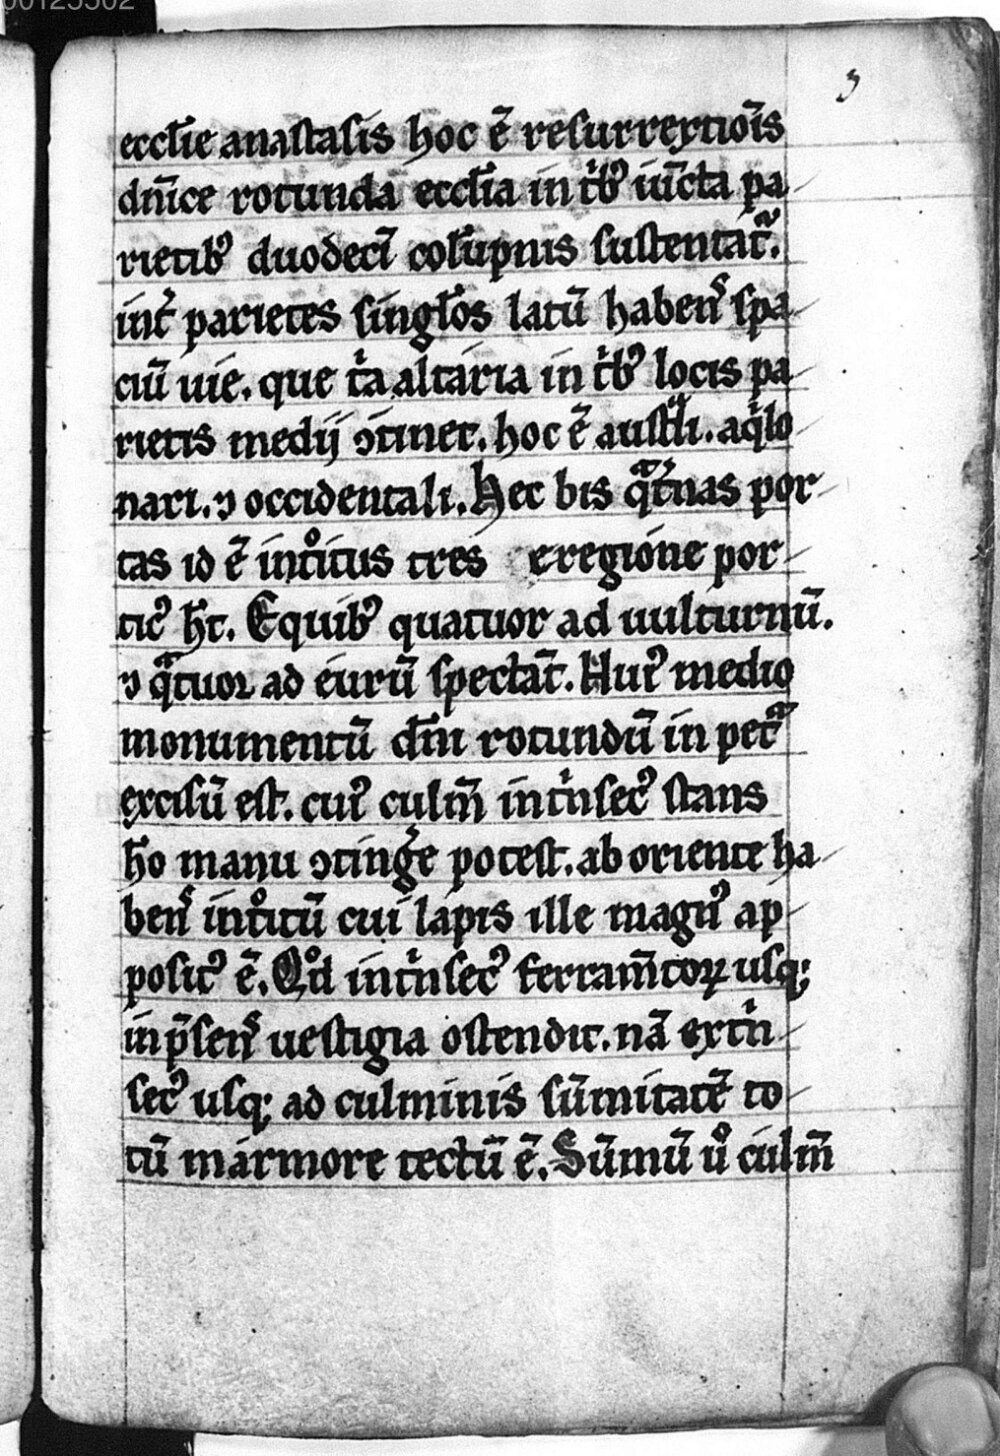 00125502
3
eccl̄ie anastasis hoc ē resurrextiōis
dn̄ice rotunda eccl̄ia in tͥbꝰ iūcta pa
rietibꝰ duodecī col̄upnis sustentat᷑.
int̛ parietes singl̄os latū habens spa
ciū uie. que tͥa altaria in tͥbꝰ locis pa
rietis medij ꝯtinet. hoc ē aust̾li. aqͥlo
nari. ⁊ occidentali. Hec bis qͣt̛nas por
tas id ē intͦitus tres e regione por
ticꝰ h̄t. E quibꝰ quatuor ad uulturnū.
⁊ qͣtuor ad eurū spectāt. Huiꝰ medio
monumentū dn̄i rotundū in petͣ
excisū est. cuiꝰ culm̄ intͥnsecꝰ stans
h̄o manu ꝯting̛e potest. ab oriente ha
bens intͦitū cui lapis ille magnꝰ ap
positꝰ ē. Qd̊ intͥnsecꝰ ferram̄toꝝ usqꝫ
in p̄sens uestigia ostendit. nā extͥn
secꝰ usqꝫ ad culminis sūmitatē to
tū marmore tectū ē. Sūmū uͦ culm̄